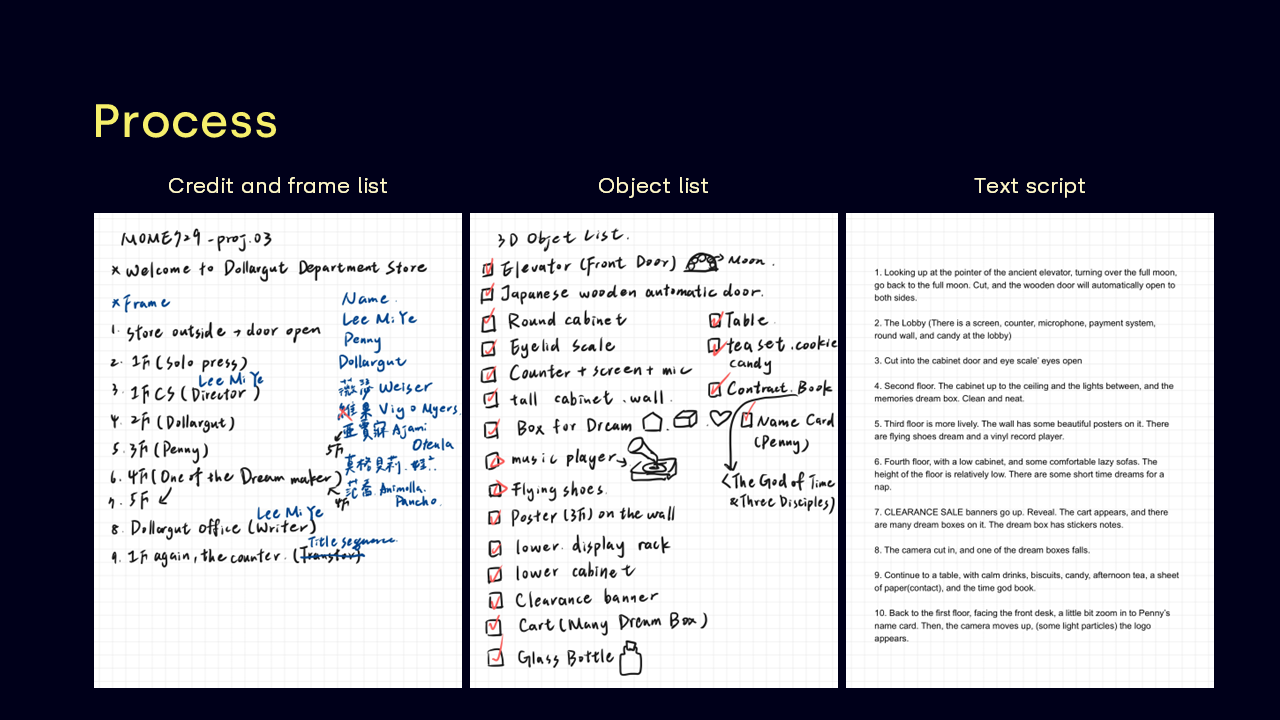 Process
Credit and frame list
MOME729 - proj.03
* Welcome to Dollargut Department Store
* Frame
1. store outside → door open
2. 1F (solo press)
Lee Mi Ye
3. 1F CS (Director)
4. 2F (Dollargut)
5. 3F (Penny)
6. 4F (One of the Dream maker)
7. 5F
Lee Mi Ye
8. Dollargut office (Writer)
Title sequence.
9. 1F again, the counter. (Transfor)
Name.
Lee Mi Ye
Penny
Dollargut
薇莎 Weiser
維果 Vigo Myers
亞賈寐 Ajami
5F
Oteula
莫格貝莉.
4F
Animolla.
Pancho.
Object list
3D Objet List.
Elevator (Front Door) → Moon.
Japanese wooden automatic door.
Round cabinet
Eyelid scale
Counter + screen + mic
tall cabinet . wall.
Box for Dream
music player →
Flying shoes.
Poster (3F) on the wall
lower display rack
lower cabinet
Clearance banner
Cart (Many Dream Box)
Glass Bottle
Table
tea set . cookie
candy
Contract. Book
Name Card
(Penny)
<The God of Time
& Three Disciples)
Text script
1. Looking up at the pointer of the ancient elevator, turning over the full moon,
go back to the full moon. Cut, and the wooden door will automatically open to
both sides.
2. The Lobby (There is a screen, counter, microphone, payment system,
round wall, and candy at the lobby)
3. Cut into the cabinet door and eye scale' eyes open
4. Second floor. The cabinet up to the ceiling and the lights between, and the
memories dream box. Clean and neat.
5. Third floor is more lively. The wall has some beautiful posters on it. There
are flying shoes dream and a vinyl record player.
6. Fourth floor, with a low cabinet, and some comfortable lazy sofas. The
height of the floor is relatively low. There are some short time dreams for a
nap.
7. CLEARANCE SALE banners go up. Reveal. The cart appears, and there
are many dream boxes on it. The dream box has stickers notes.
8. The camera cut in, and one of the dream boxes falls.
9. Continue to a table, with calm drinks, biscuits, candy, afternoon tea, a sheet
of paper(contact), and the time god book.
10. Back to the first floor, facing the front desk, a little bit zoom in to Penny's
name card. Then, the camera moves up, (some light particles) the logo
appears.